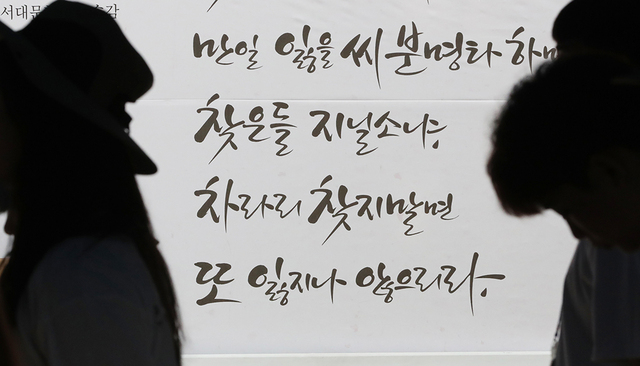 서대문
만일 잃을 씨 분명타
찾은들 지닐소냐,
차라리 찾지말면
또 잃지나 않으리라.